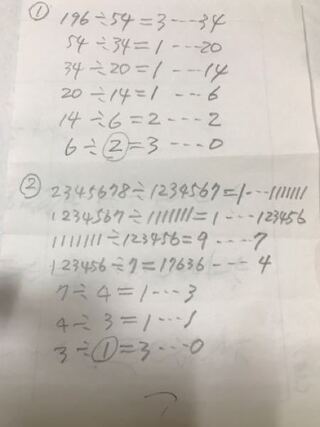 ① 196÷54=3…34
54÷34=1…20
34÷20=1…14
20÷14=1…6
14÷6=2…2
6÷2=3…0
② 2345678÷1234567=1…1111111
1234567÷1111111=1…123456
1111111÷123456=9…7
123456÷7=17636…4
7÷4=1…3
4÷3=1…1
3÷1=3…0